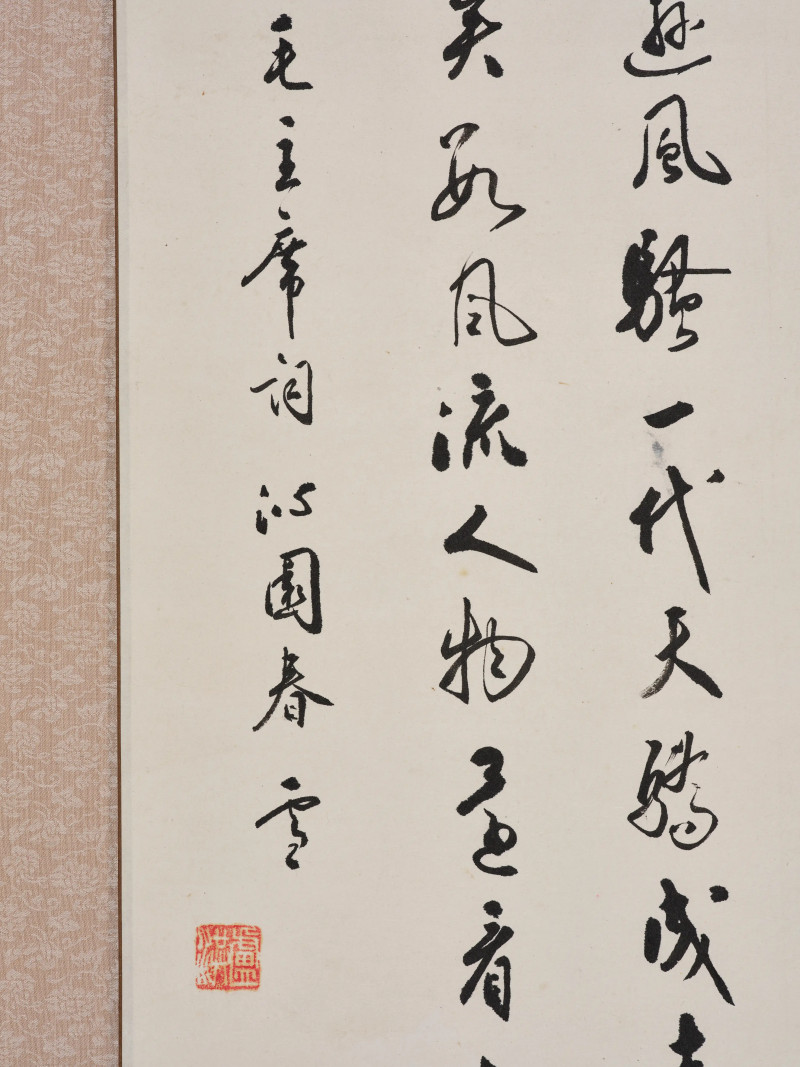 遜風騷一代天驕成吉
矣數風流人物還看
毛主席詞 沁園春 雪